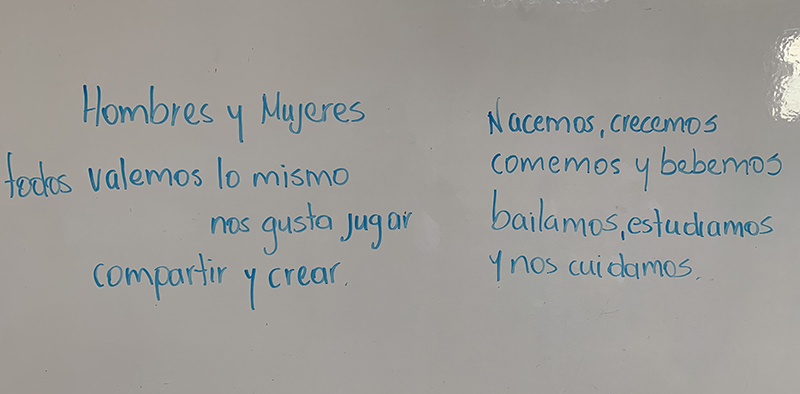 Hombres y Mujeres
todos valemos lo mismo
nos gusta jugar
compartir y crear.
Nacemos, crecemos
comemos y bebemos
bailamos, estudiamos
y nos cuidamos.